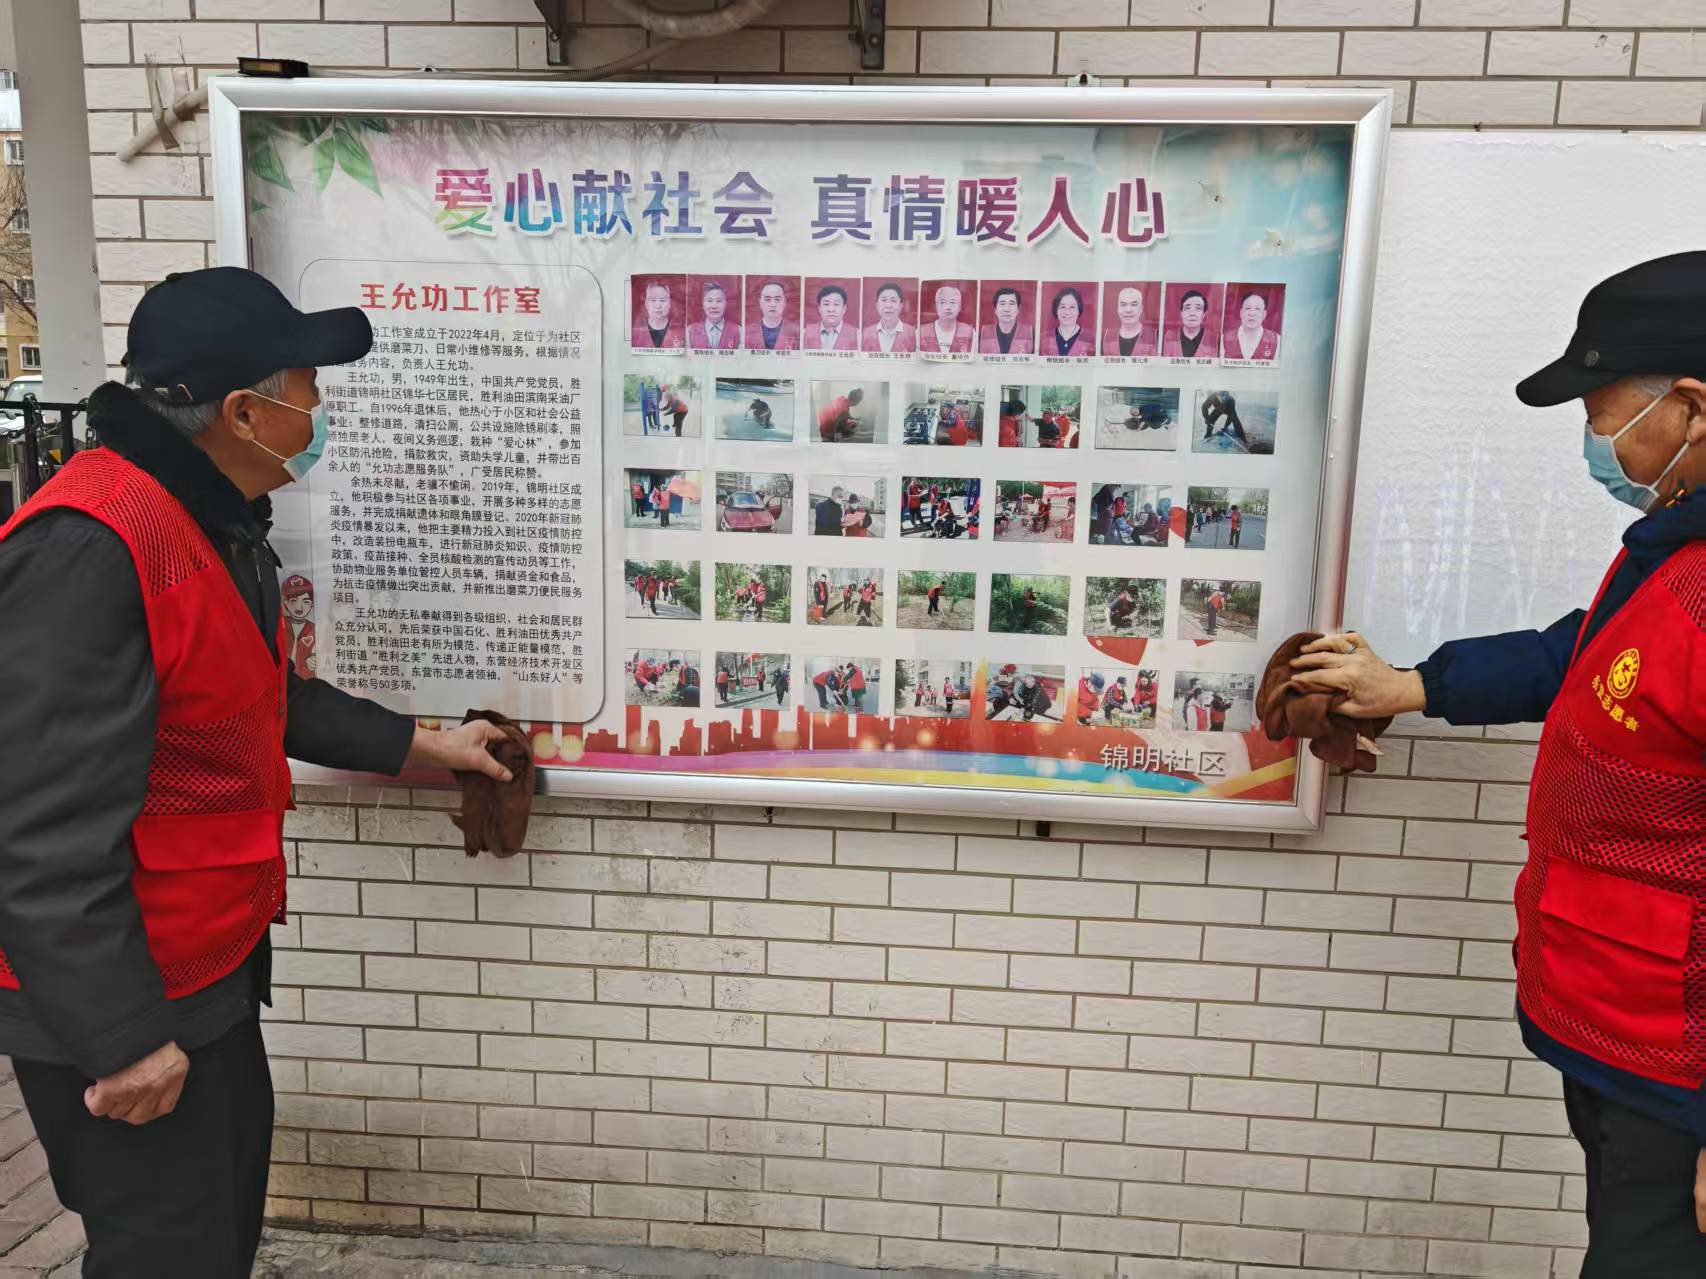 爱心献社会 真情暖人心
王允功工作室
功工作室成立于2022年4月，定位于为社区
提供磨菜刀、日常小维修等服务，根据情况
服务内容，负责人王允功。
王允功，男，1949年出生，中国共产党党员，胜
利街道锦明社区锦华七区居民，胜利油田滨南采油厂
原职工。自1996年退休后，他热心于小区和社会公益
事业：整修道路，清扫公厕，公共设施除锈刷漆，照
顾独居老人，夜间义务巡逻，栽种“爱心林”，参加
小区防汛抢险，捐款救灾，资助失学儿童，并带出百
余人的“允功志愿服务队”，广受居民称赞。
余热未尽献，老骥不偷闲。2019年，锦明社区成
立，他积极参与社区各项事业，开展多种多样的志愿
服务，并完成捐献遗体和眼角膜登记。2020年新冠肺
炎疫情暴发以来，他把主要精力投入到社区疫情防控
中，改造装扮电瓶车，进行新冠肺炎知识、疫情防控
政策、疫苗接种、全员核酸检测的宣传动员等工作，
协助物业服务单位管控人员车辆，捐献资金和食品，
为抗击疫情做出突出贡献，并新推出磨菜刀便民服务
项目。
王允功的无私奉献得到各级组织、社会和居民群
众充分认可，先后荣获中国石化、胜利油田优秀共产
党员，胜利油田老有所为模范、传递正能量模范，胜
利街道“胜利之美”先进人物，东营经济技术开发区
优秀共产党员，东营市志愿者领袖，“山东好人”等
荣誉称号50多项。
锦明社区
志愿者